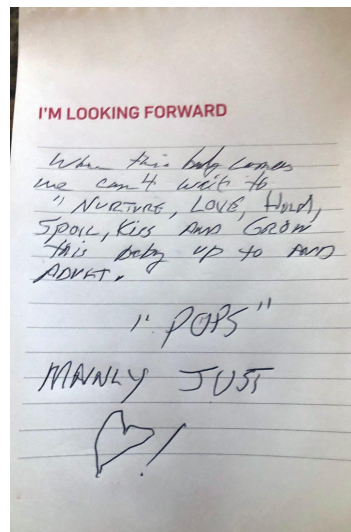 I'M LOOKING FORWARD
When this baby comes
we can't wait to
" NURTURE, LOVE, HOLD,
SPOIL, KISS AND GROW
this baby UP to AND
ADULT.
" POPS "
MAINLY JUST
♡!